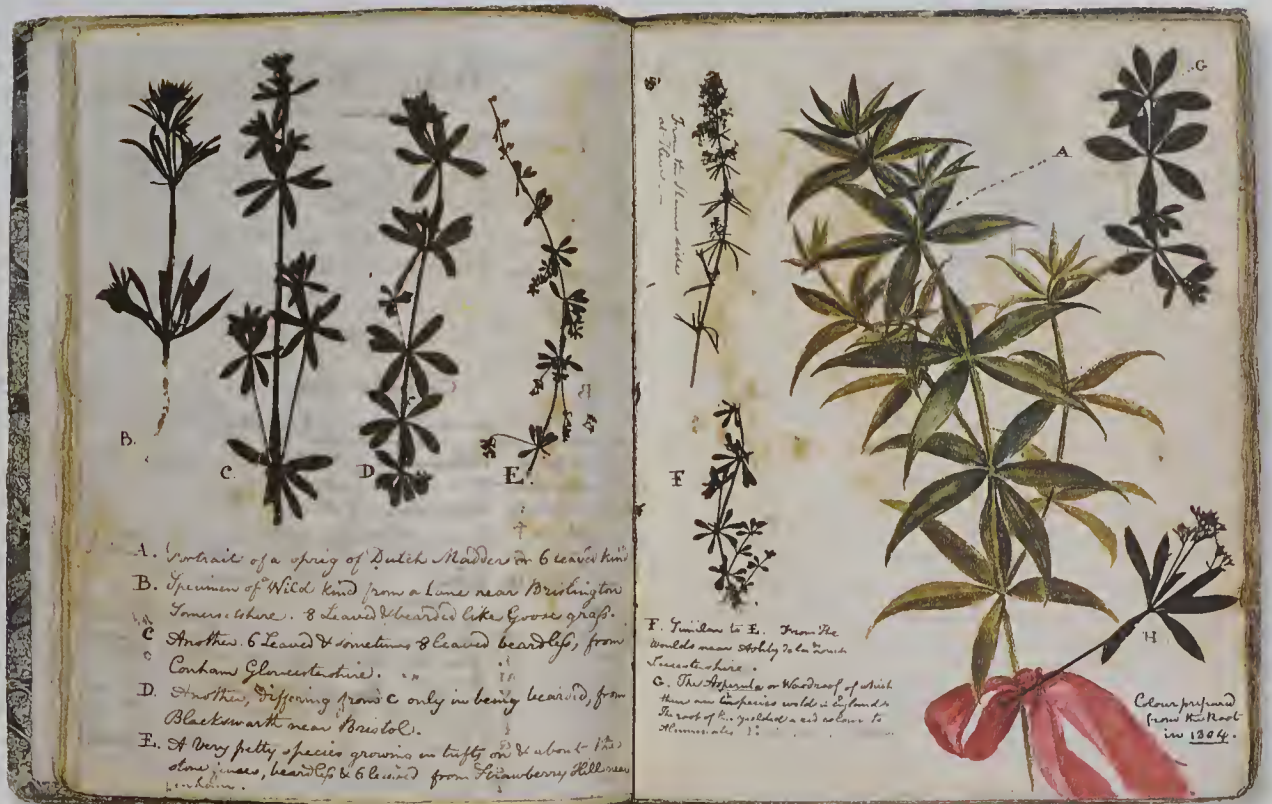 B.
C.
D
E.
A. Portrait of a sprig of Dutch Madder or 6 leaved kind
B. Specimen of Wild kind from a Lane near Brislington
Somersetshire. 8 Leaved & bearded like Goose grass.
C Another. 6 Leaved & sometimes 8 leaved beardless, from
Conham Gloucestershire.
D. Another, differing from C only in being bearded, from
Blackswarth near Bristol.
E. A very pretty species growing in tufts on & about the
stone, beardless & 6 leaved from Strawberry Hill near
From the
at
A
G
F
H
F. Similar to E. From the
woulds near Ashby de la Zouch
Leicestershire.
G. The Asperula or Woodroof of which
there are species wild in England &
The root of yielded a red colour to
Colour prepared
from the Root
in 1804.